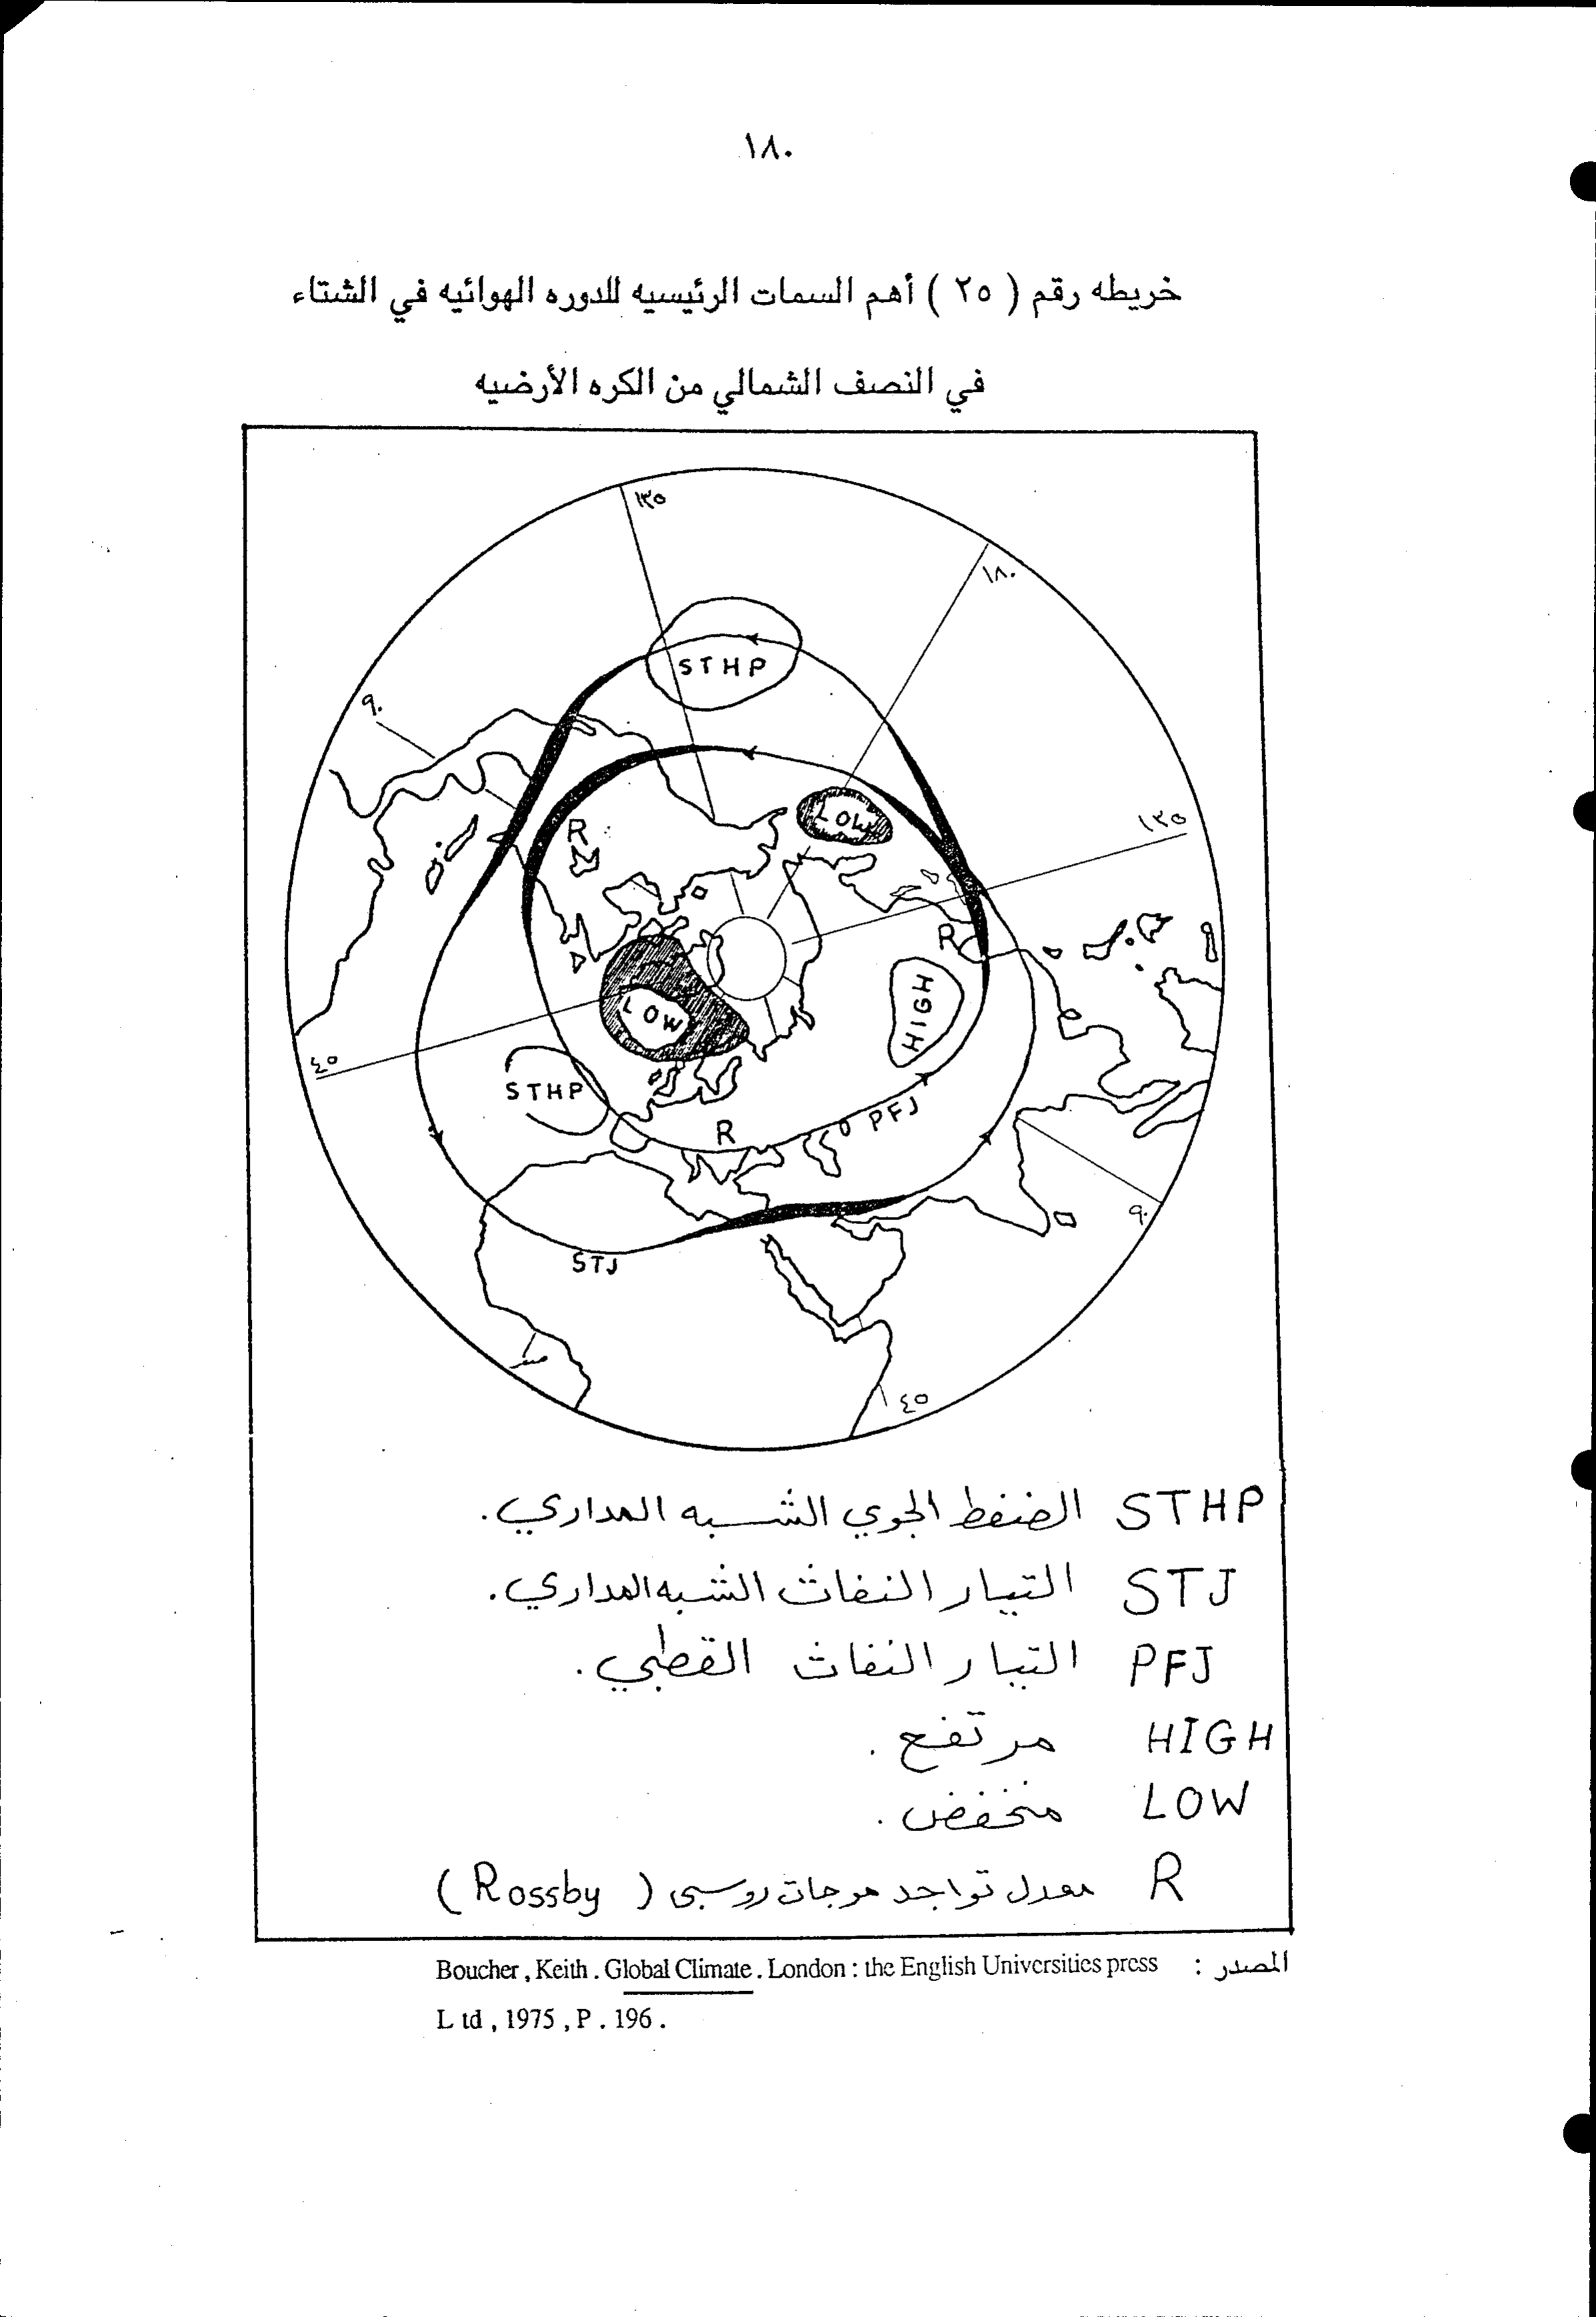 ١٨٠
خريطه رقم ( ٢٥ ) أهم السمات الرئيسيه للدوره الهوائيه في الشتاء
في النصف الشمالي من الكره الأرضيه
١٣٥
١٨٠
STHP
٩٠
LOW
١٣٥
R
R
HIGH
LOW
٤٥
STHP
PFJ
R
٩٠
STJ
٤٥
STHP الضغط الجوي الشبه المداري.
STJ التيار النفاث الشبه المداري.
PFJ التيار النفاث القطبي.
HIGH مرتفع.
LOW منخفض.
R معدل تواجد موجات روسبى ( Rossby )
المصدر : Boucher , Keith . Global Climate . London : the English Universities press
L td , 1975 , P . 196 .